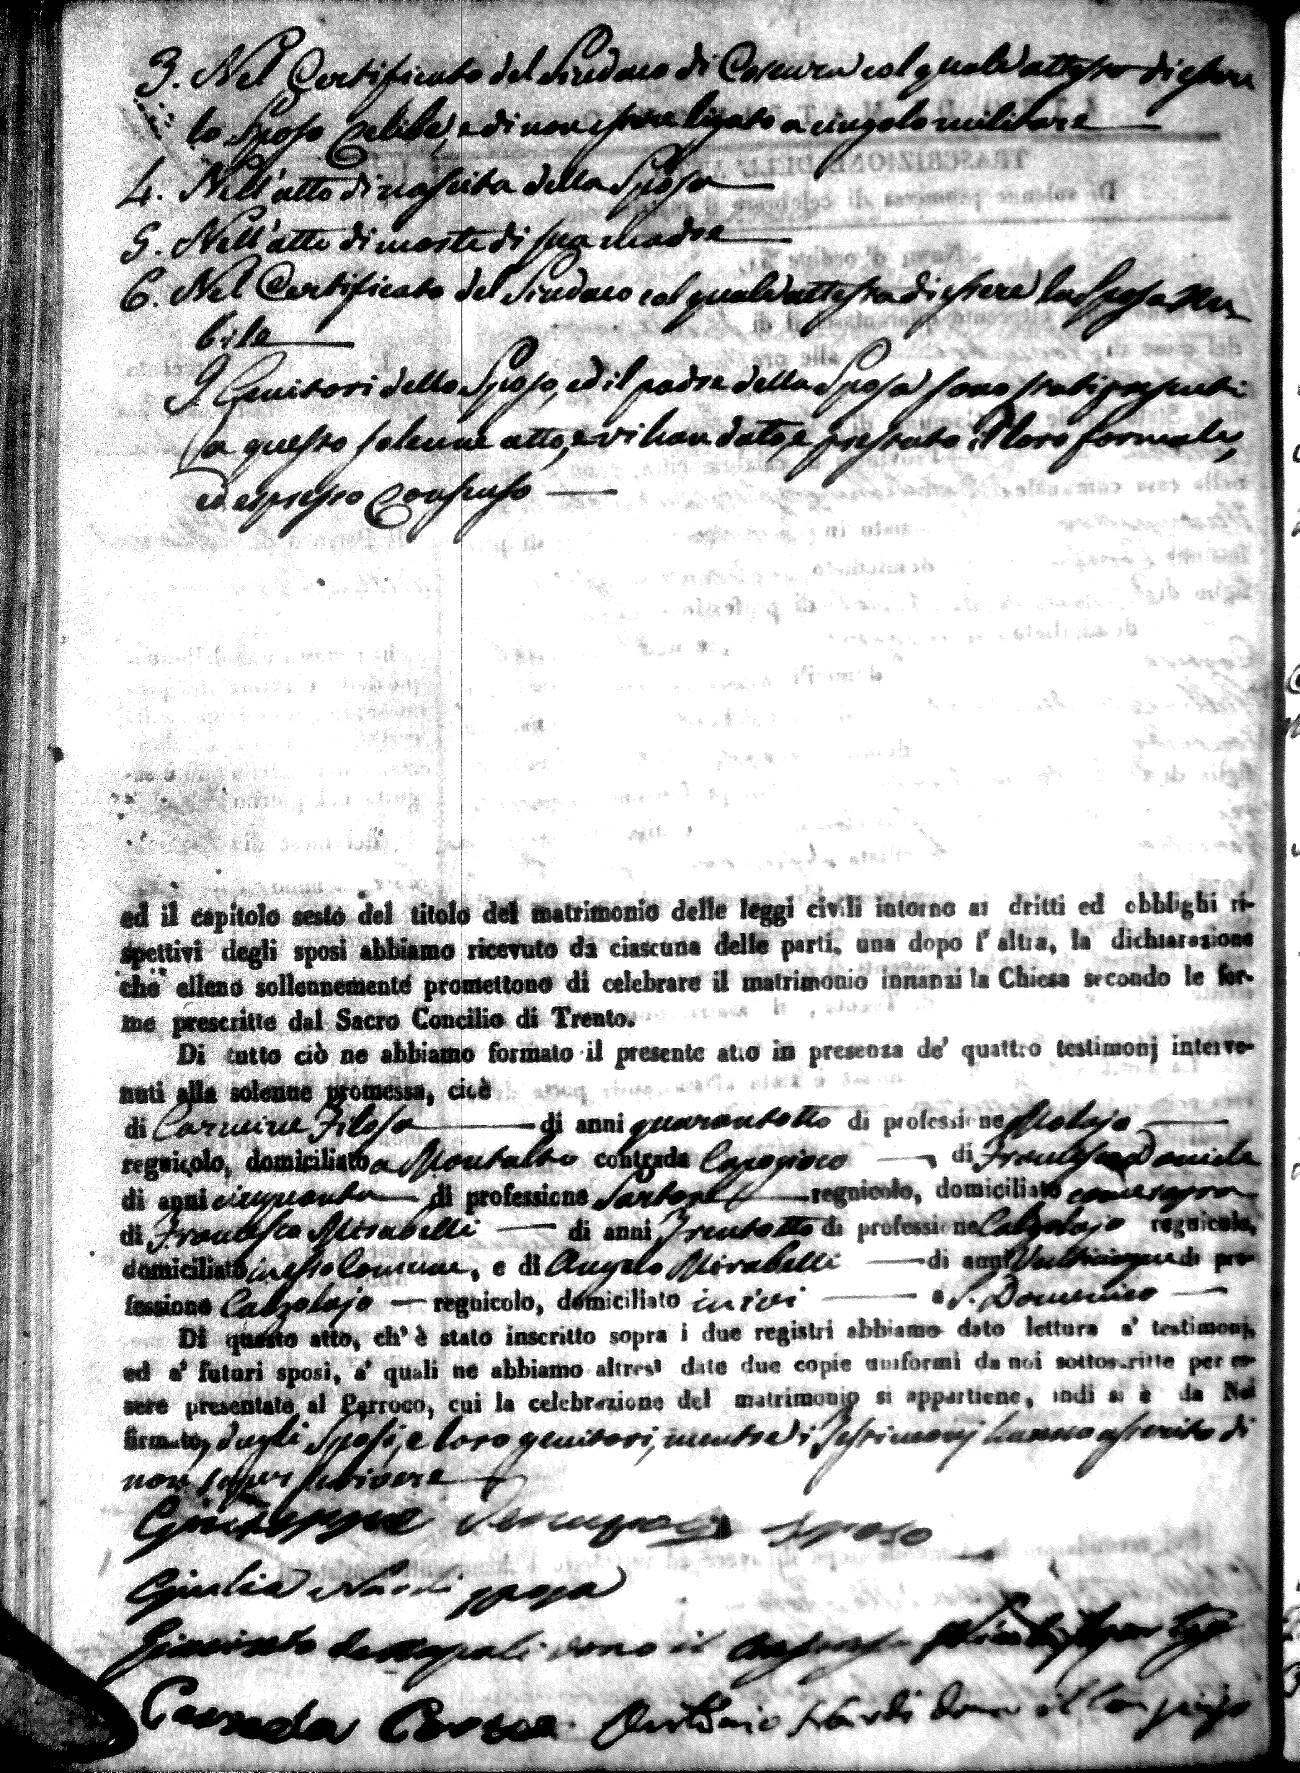 3. Nel Certificato del Sindaco di Cosenza col quale attesta di essere
lo Sposo Celibe, e di non essere ligato a cingolo militare
4. Nell'atto di nascita della Sposa
5. Nell'atto di morte di sua madre
6. Nel Certificato del Sindaco col quale attesta di essere la Sposa Nu
bile
I Genitori dello Sposo, ed il padre della Sposa sono stati presenti
a questo solenne atto, e vi han dato, e prestato il loro formale,
ed espresso Consenso
ed il capitolo sesto del titolo del matrimonio delle leggi civili intorno ai dritti ed obblighi ri-
spettivi degli sposi abbiamo ricevuto da ciascuna delle parti, una dopo l'altra, la dichiarazione
che elleno sollennemente promettono di celebrare il matrimonio innanzi la Chiesa secondo le for-
me prescritte dal Sacro Concilio di Trento.
Di tutto ciò ne abbiamo formato il presente atto in presenza de' quattro testimonj interve-
nuti alla solenne promessa, cioè
di Carmine Filosa di anni quarantotto di professione Molajo
regnicolo, domiciliato a Montalto contrada Capogioco di Francesco Daniele
di anni cinquanta di professione Sartore regnicolo, domiciliato come sopra
di Francesco Mirabelli di anni Trentotto di professione Calzolajo regnicolo,
domiciliato in esso Comune, e di Angelo Mirabelli di anni Venticinque di pro-
fessione Calzolajo regnicolo, domiciliato in ivi a S. Domenico
Di questo atto, ch'è stato inscritto sopra i due registri abbiamo dato lettura a' testimonj,
ed a' futuri sposi, a' quali ne abbiamo altresì date due copie uniformi da noi sottoscritte per es-
sere presentate al Parroco, cui la celebrazione del matrimonio si appartiene, indi si è da Noi
firmato, dagli Sposi, e loro genitori, mentre i Testimonj hanno asserito di
non saper scrivere
Giuseppe sposo
Giulia Nardi sposa
Giacinto de Napoli dono il consenso
Antonio Nardi dono il consenso